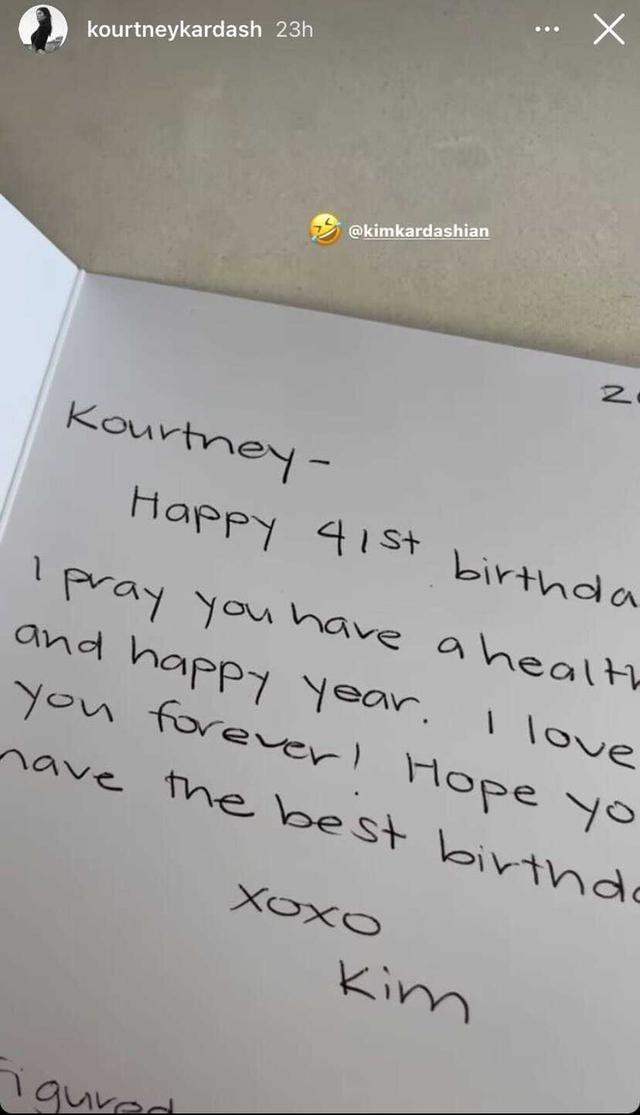 kourtneykardash 23h
@kimkardashian
Kourtney-
Happy 41st birthda
I pray you have a health
and happy year. I love
you forever! Hope yo
have the best birthda
xoxo
Kim
figured